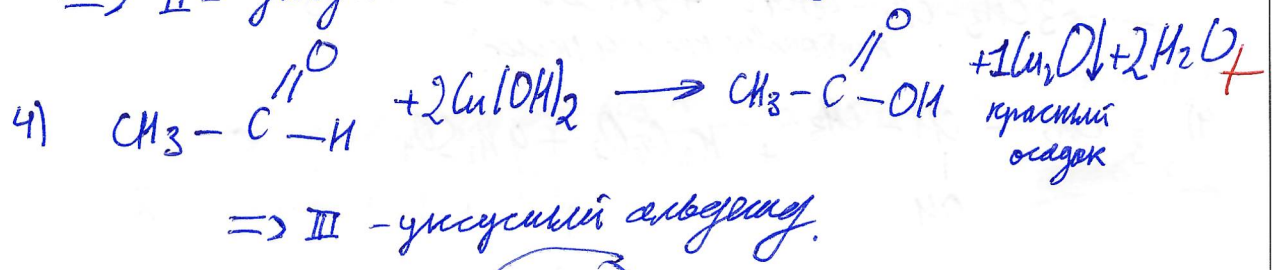 4) CH₃ – C(=O) – H + 2Cu(OH)₂ → CH₃ – C(=O) – OH + 1Cu₂O↓ + 2H₂O +
красный
осадок
=> III – уксусный альдегид.